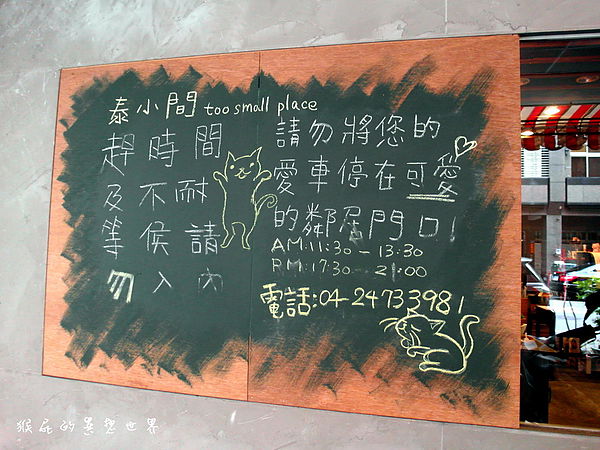 泰小間 too small place
趕時間
及不耐
等候請
勿入內
請勿將您的
愛車停在可愛
的鄰居門口!
AM:11:30-13:30
PM:17:30-21:00
電話:04-24733981
猴屁的異想世界